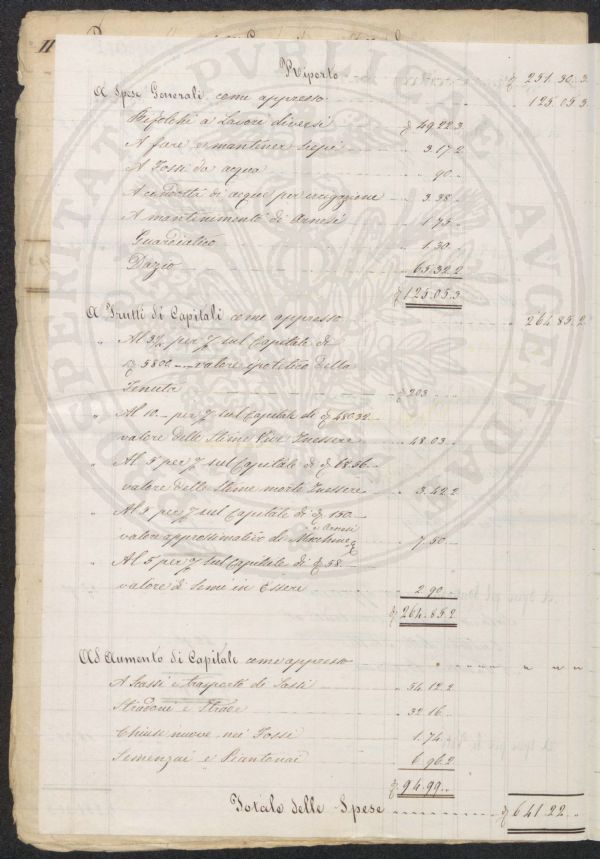 11
Riporto ƒ 251.30.3
A Spese Generali come appresso 125.05.3
a Lavori diversi ƒ 49.22.3
A fare e mantener siepi 3.17.2
A Fossi da acqua 90
A condotta di acque per irrigazione 3.38
A mantenimento di Arnesi 1.73
Guardiatico 1.30
Dazio 65.32.2
ƒ 125.05.3
A Frutti di Capitali come appresso 264.85.2
" Al 3½ per % sul Capitale di
ƒ 5800 valore ipotetico della
Tenuta ƒ 203
" Al 10 per % sul Capitale di ƒ 480.32
valore delle Stime Vive Inessere 48.03
" Al 5 per % sul Capitale di ƒ 68.56
valore delle Stime morte Inessere 3.42.2
" Al 5 per % sul Capitale di ƒ 150
valore approssimativo di Macchine e Arnesi 7.50
" Al 5 per % sul Capitale di ƒ 58
valore di Semi in Essere 2.90
ƒ 264.85.2
Ad Aumento di Capitale come appresso
A Scassi e trasporto di Sassi 54.12.2
Stradoni e Strade 32.16
Chiuse nuove nei Fossi 1.74
Semenzai e Piantonai 6.96.2
ƒ 94.99
Totale delle Spese ƒ 641.22
PROSPERITATI PUBLICAE AUGENDAE